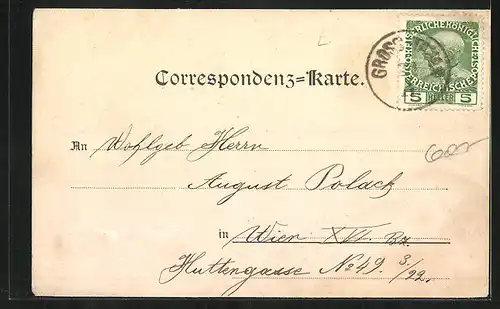 KAISERLICHE KÖNIGLICHE
ÖSTERREICHISCHE
5 HELLER 5
Correspondenz=Karte.
An Wohlgeb Herrn
August Polack
in Wien XVI. Bz.
Huttengasse No 49. 3/22.
600